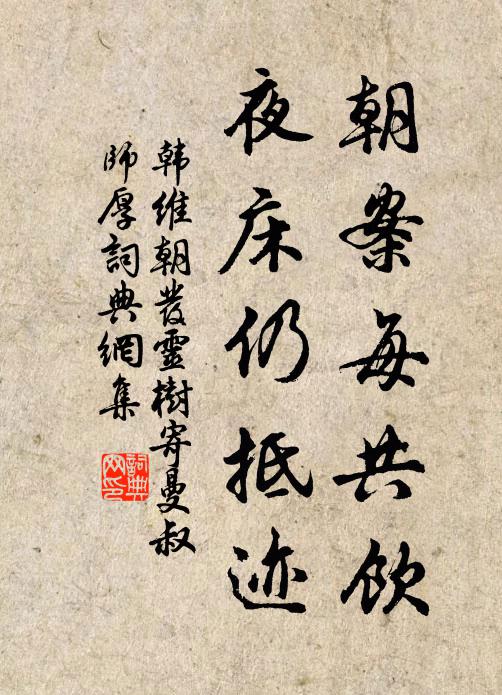 朝案每共飲
夜床仍抵迹
韩維朝發靈樹寄曼叔
師厚詞典網集
詞典网印